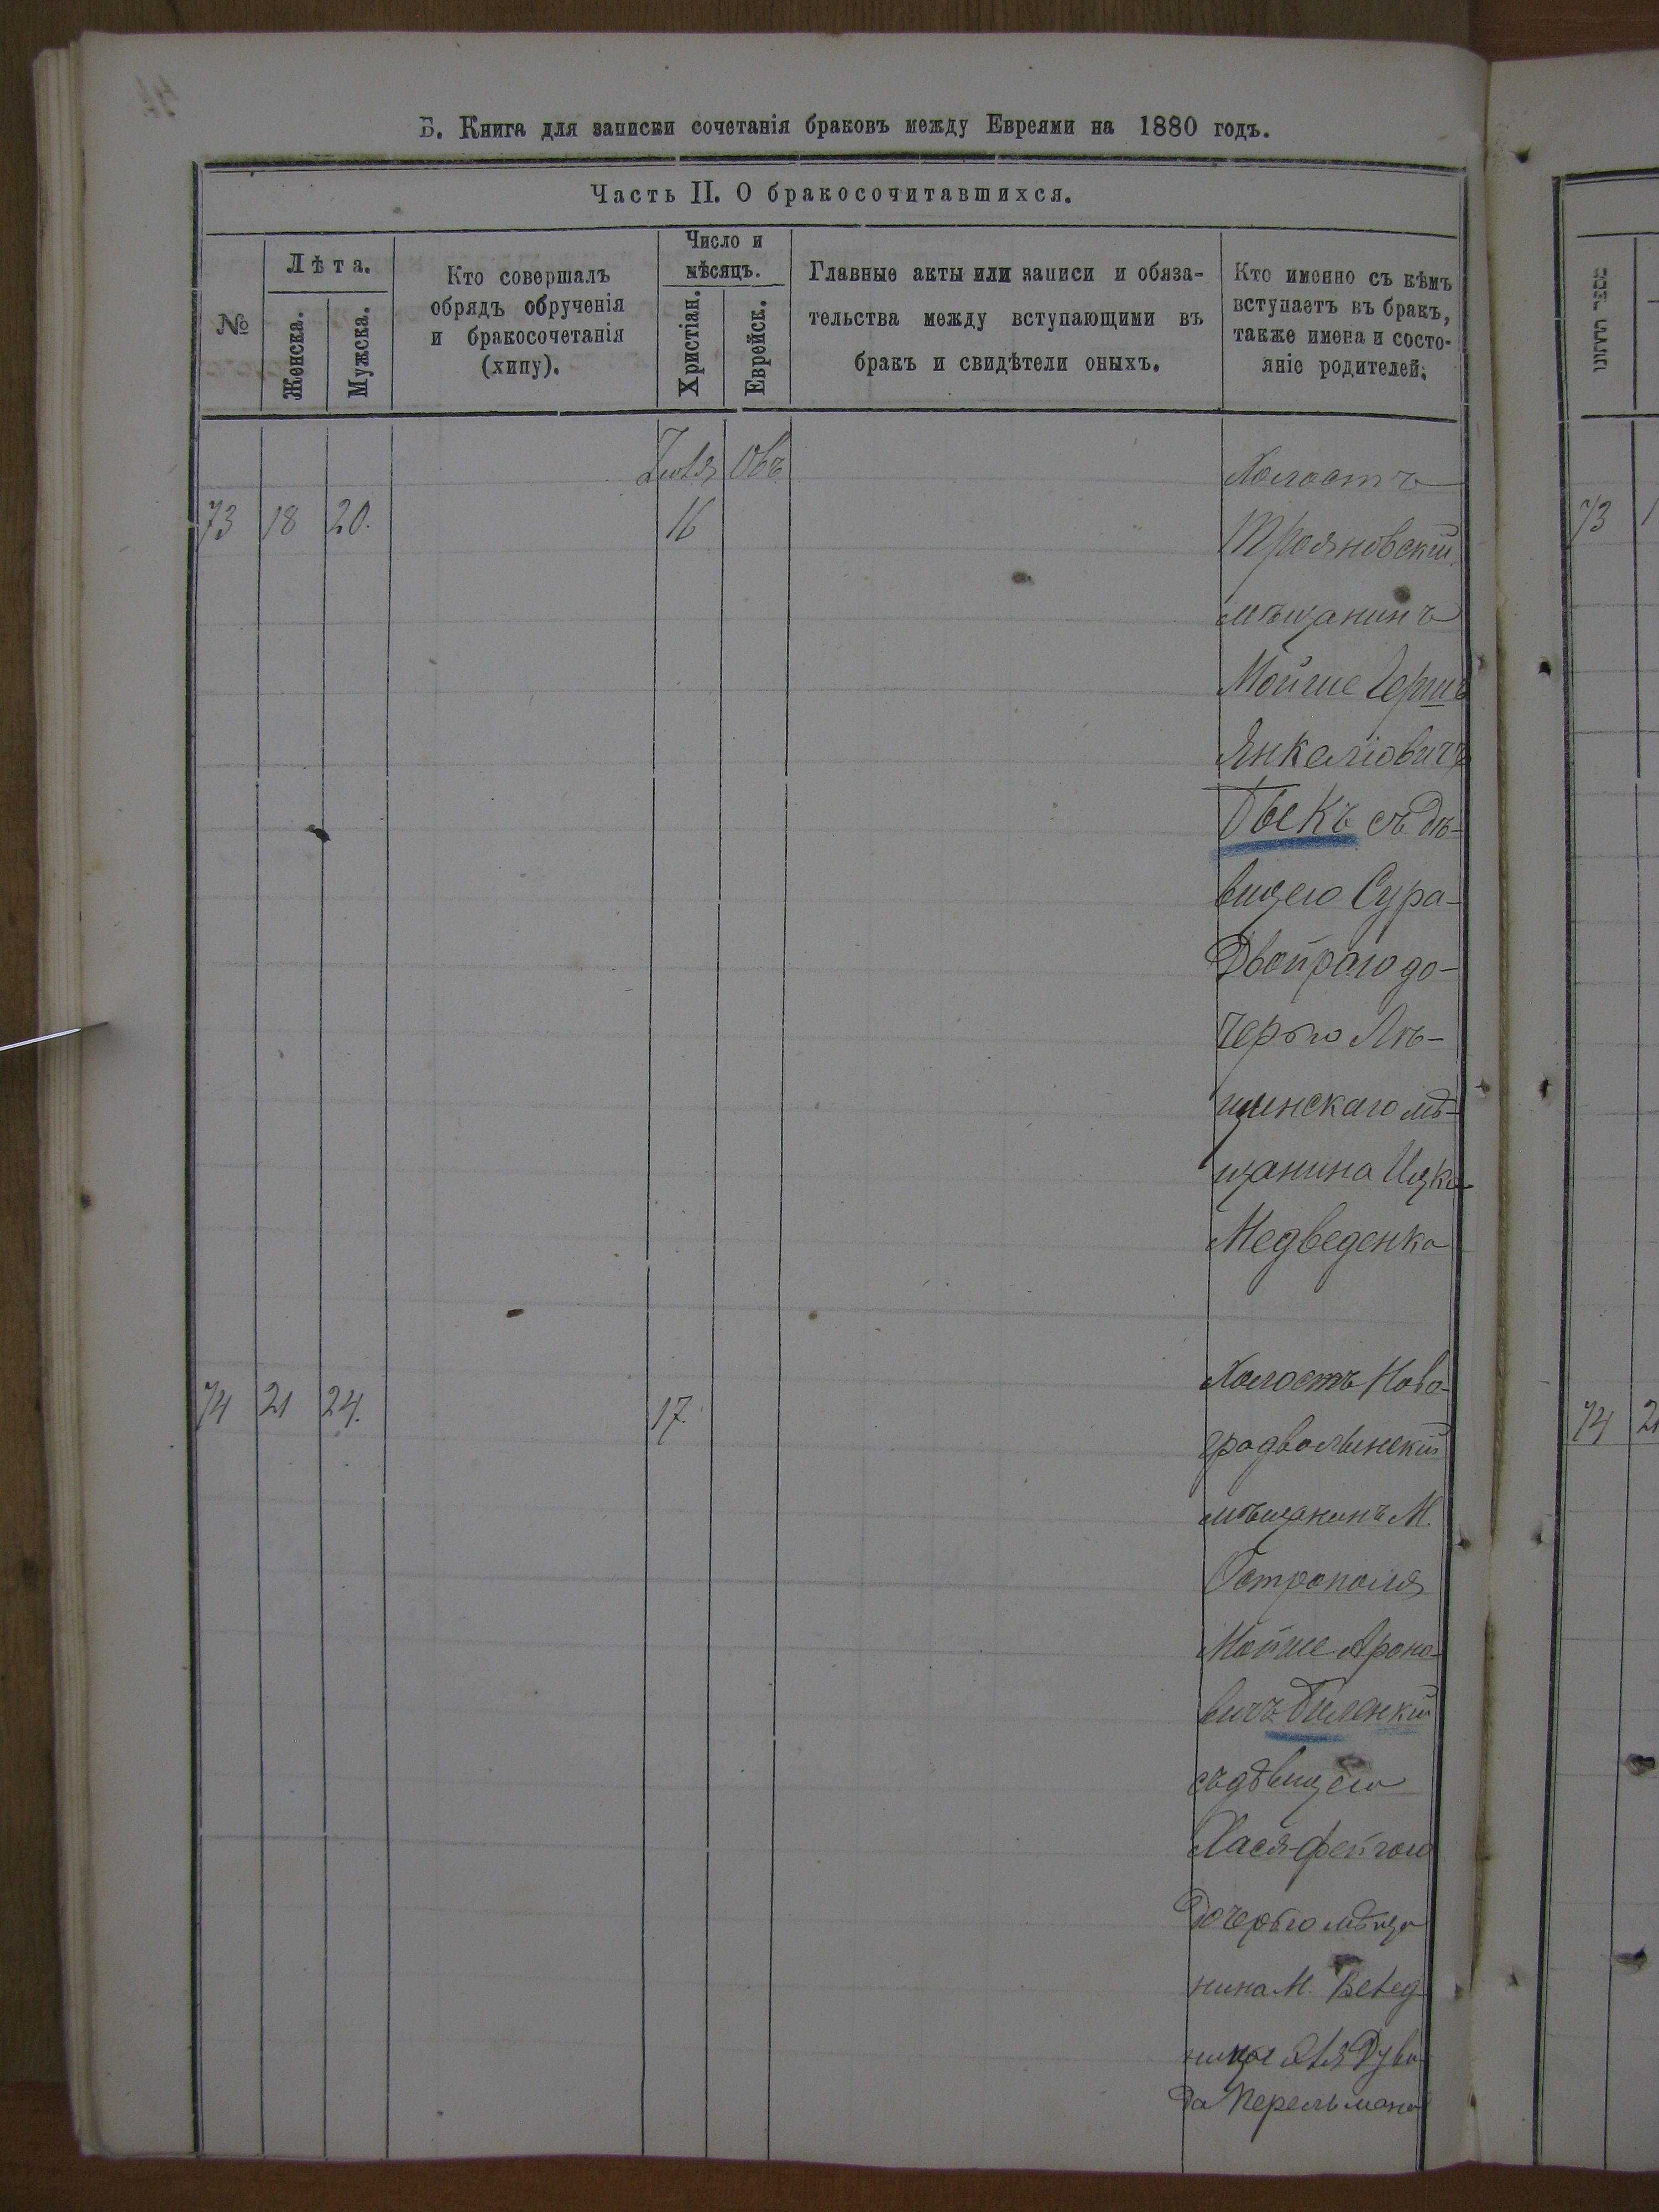 Б. Книга для записки сочетанія браковъ между Евреями на 1880 годъ.
Часть II. О бракосочитавшихся.
№
Лѣта.
Женска.
Мужска.
Кто совершалъ
обрядъ обрученія
и бракосочетанія
(хипу).
Число и
мѣсяцъ.
Христіан.
Еврейск.
Главные акты или записи и обяза-
тельства между вступающими въ
бракъ и свидѣтели оныхъ.
Кто именно съ кѣмъ
вступаетъ въ бракъ,
также имена и состо-
яніе родителей.
Іюля Овъ
73 18 20. 16
Холостъ
Трояновскій
мѣщанинъ
Мойше Гершъ
Янкеліовичъ
Быкъ съ дѣ-
вицею Сура-
Двойрою до-
черью
щинскаго мѣ-
щанина Ицка
Медведенка
74 21 24. 17.
Холостъ Ново-
градволынскій
мѣщанинъ М.
Острополя
Мойше Ароно-
вичъ Биленкій
съ дѣвицею
Хася-Фейгою
дочерью мѣща
нина М.
Дуви
да Перельмана
73
74 21